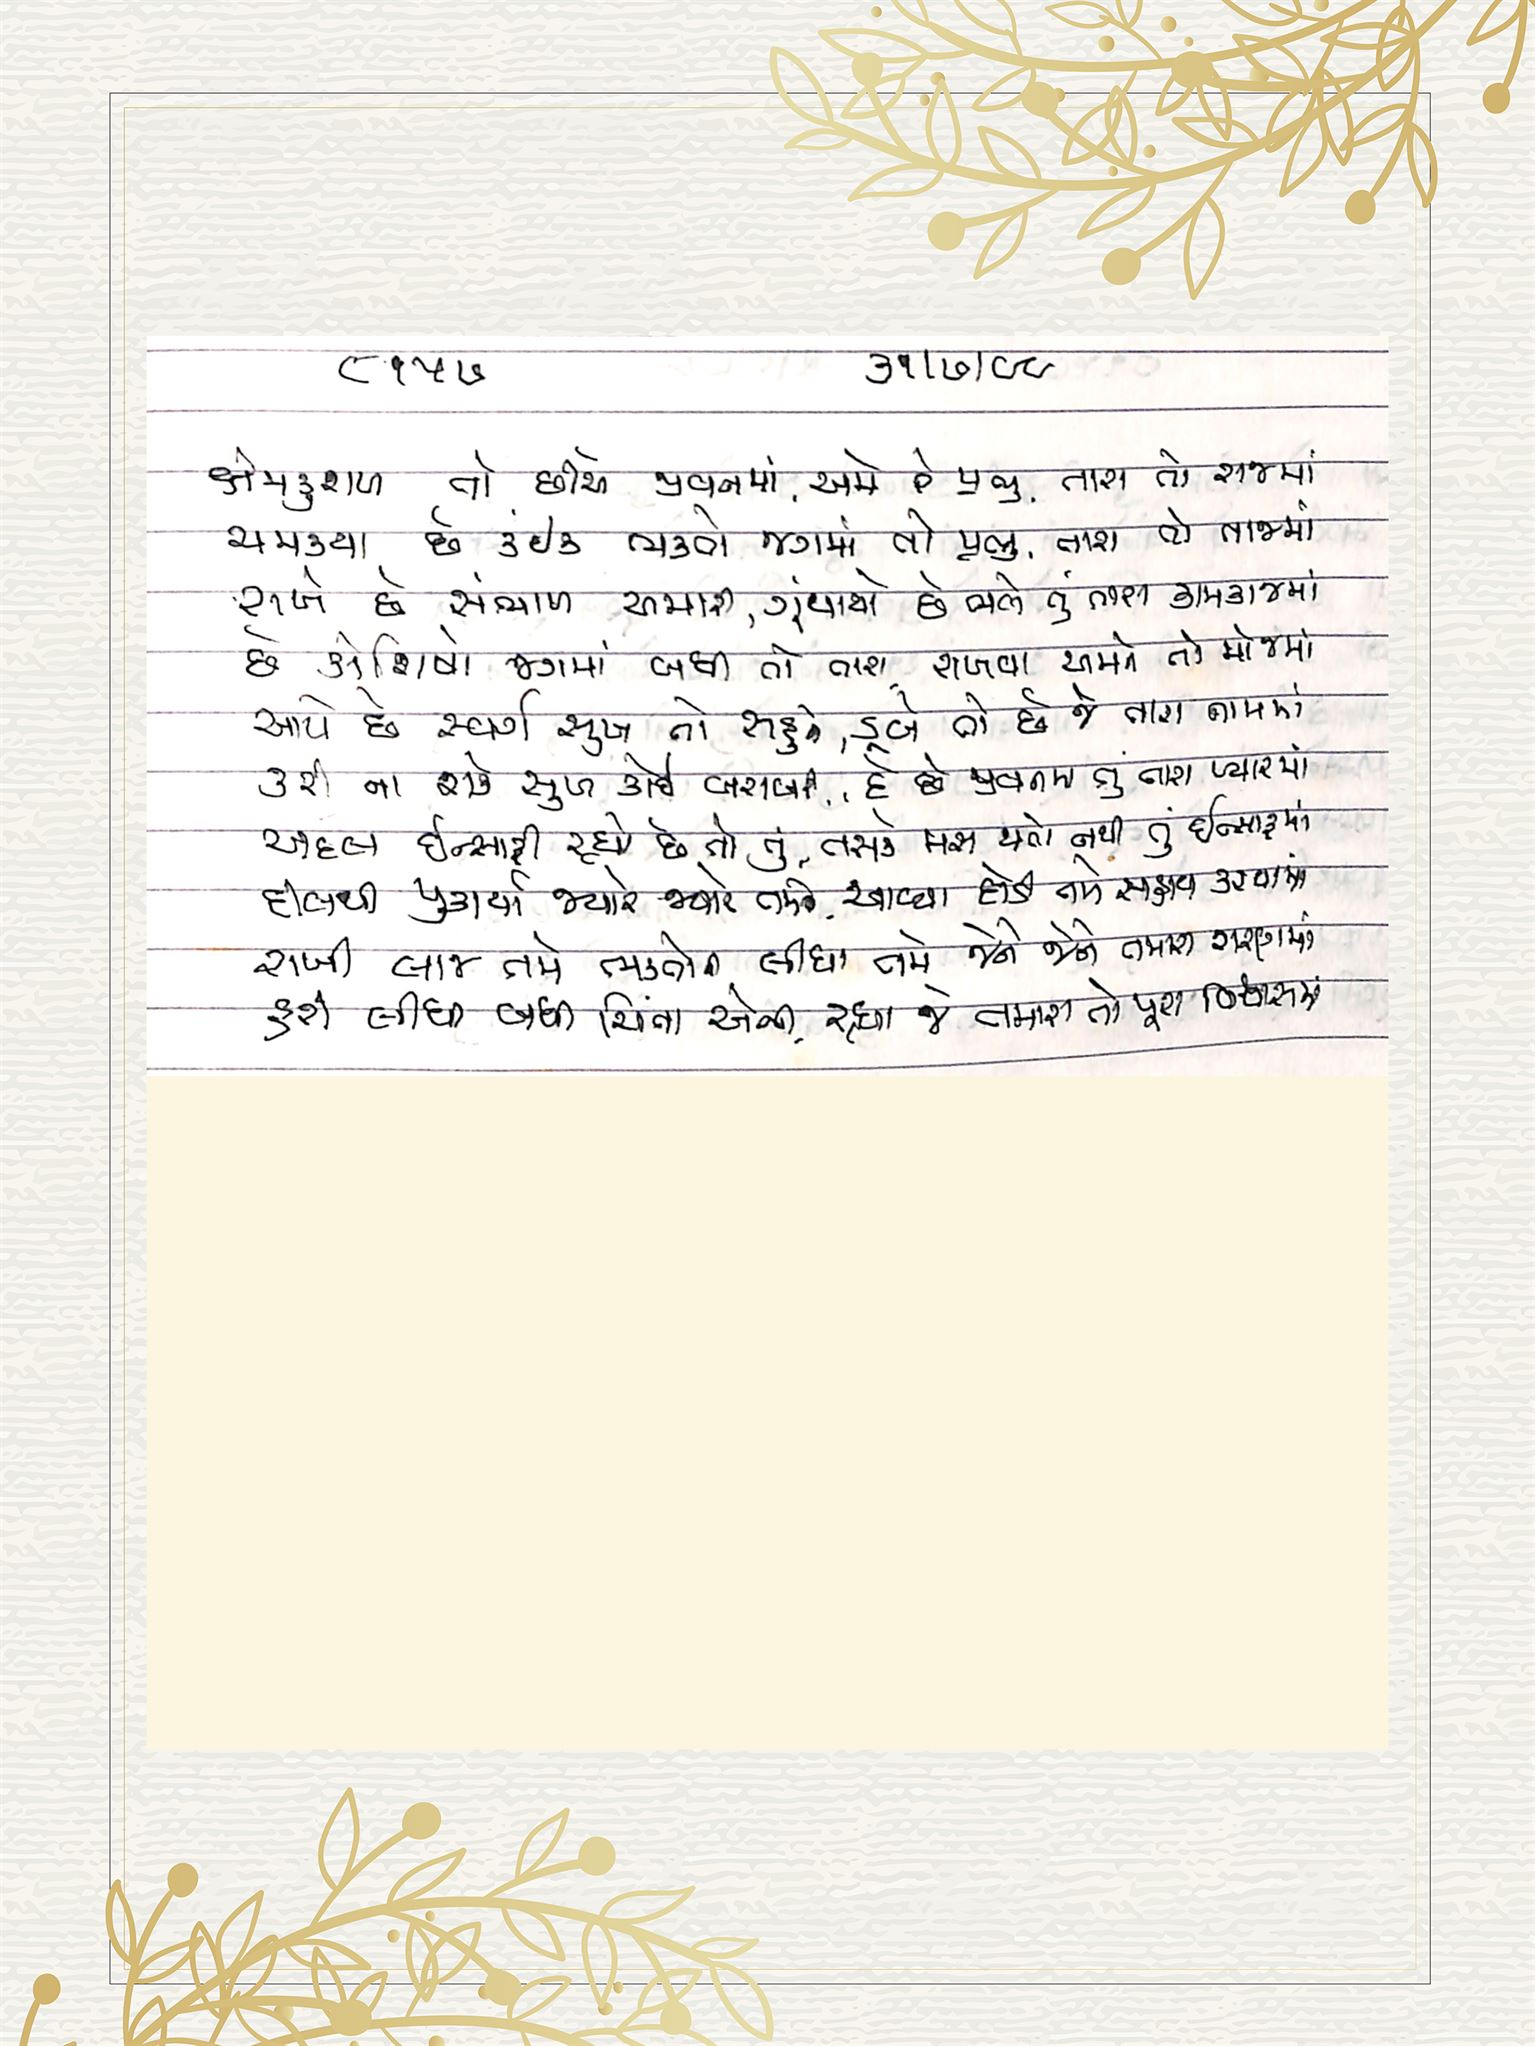 ૮૧૫૭ ૩૧/૭/૯૯
ક્ષેમકુશળ તો છીએ જીવનમાં, અમે હે પ્રભુ, તારા તો રાજમાં
ચમક્યા છે કંઈક ભક્તો જગમાં તો પ્રભુ, તારા તો તાજમાં
રાખે છે સંભાળ અમારી, ગૂંથાયો છે ભલે તું તારા કામકાજમાં
છે કોશિષો જગમાં બધી તો તારી, રાખવા અમને તો મોજમાં
આપે છે સ્વર્ગ સુખ તો સહુને, ડૂબે તો છે જે તારા નામમાં
કરી ના શકે સુખ કોઈ બરાબરી, હે છે જીવનમાં તું તારા પ્યારમાં
અદલ ઈન્સાફી રહ્યો છે તો તું, તસકે મસ થતો નથી તું ઈન્સાફમાં
દિલથી પુકાર્યા જ્યારે જ્યારે તમને, આવ્યા દોડી તમે સહાય કરવામાં
રાખી લાજ તમે ભક્તોની લીધા તમે જેને જેને તમારા શરણમાં
હરી લીધી બધી ચિંતા એની, રહ્યા જે તમારા તો પૂરા વિશ્વાસમાં